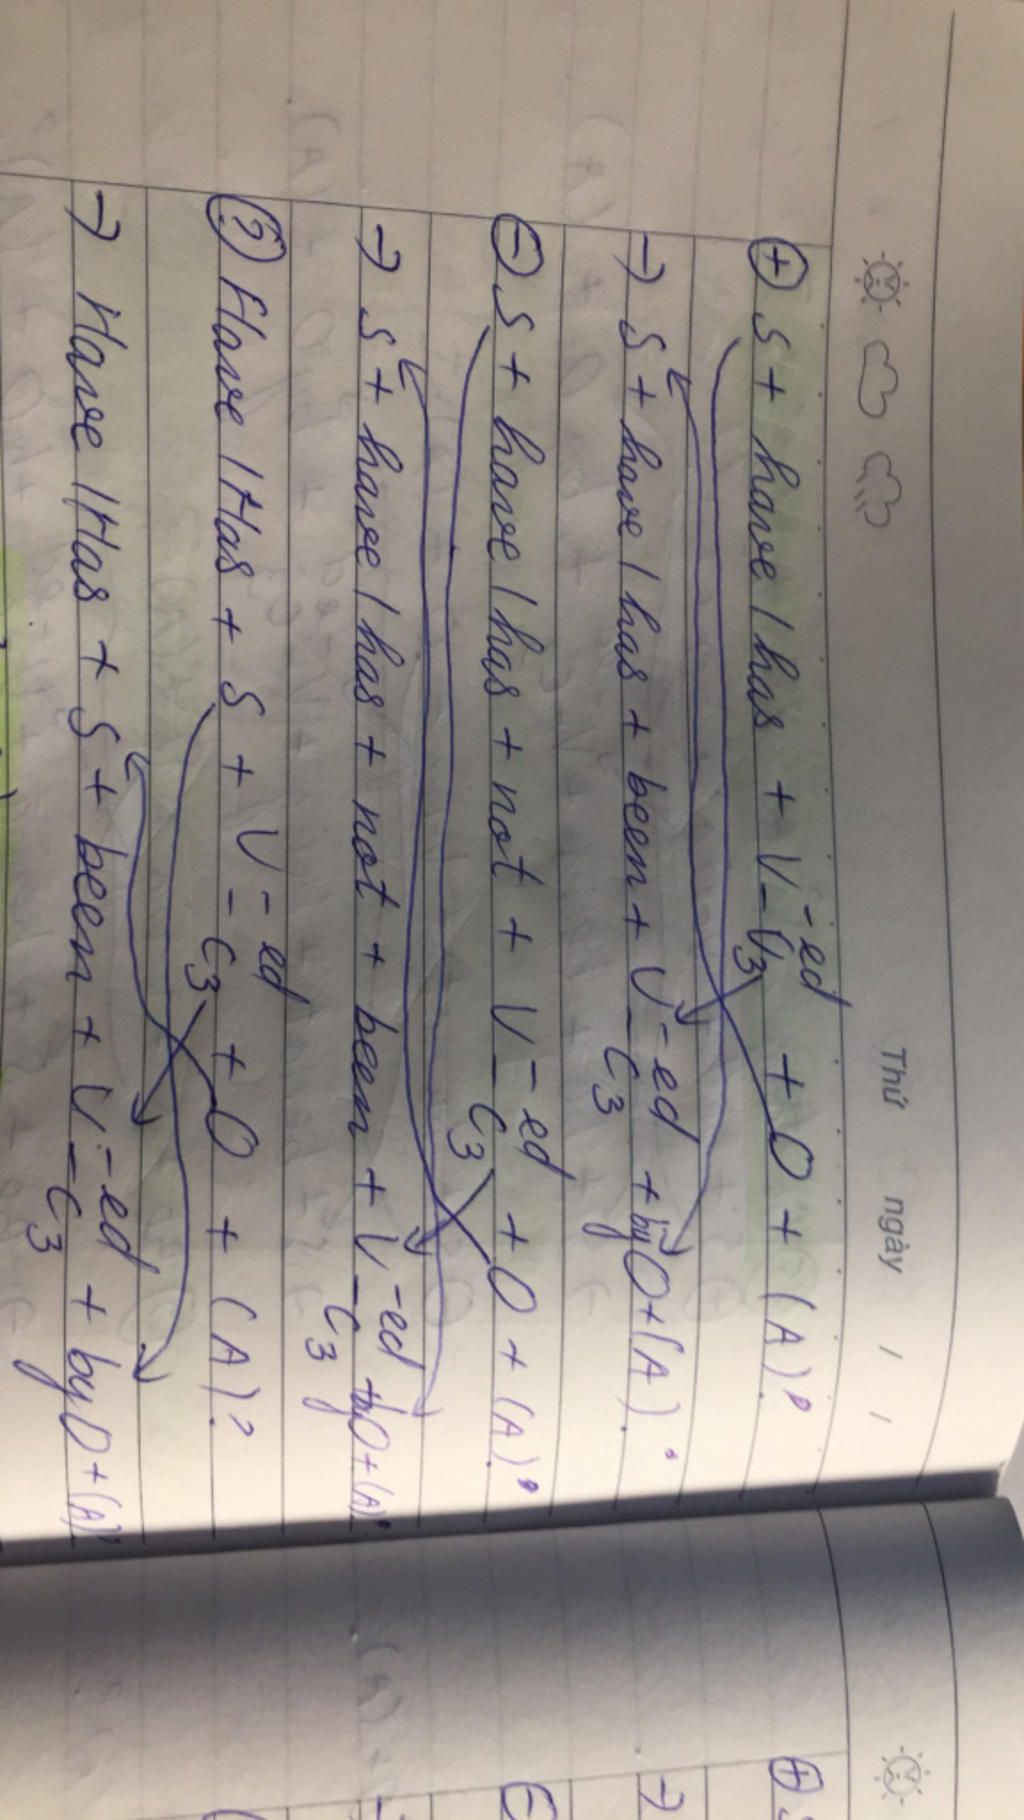 Thứ ngày / /
⊕ S + have / has + V-ed/C3 + O + (A).
→ S + have / has + been + V-ed/C3 + by O + (A).
⊖ S + have / has + not + V-ed/C3 + O + (A).
→ S + have / has + not + been + V-ed/C3 + by O + (A).
? Have / Has + S + V-ed/C3 + O + (A)?
→ Have / Has + S + been + V-ed/C3 + by O + (A)